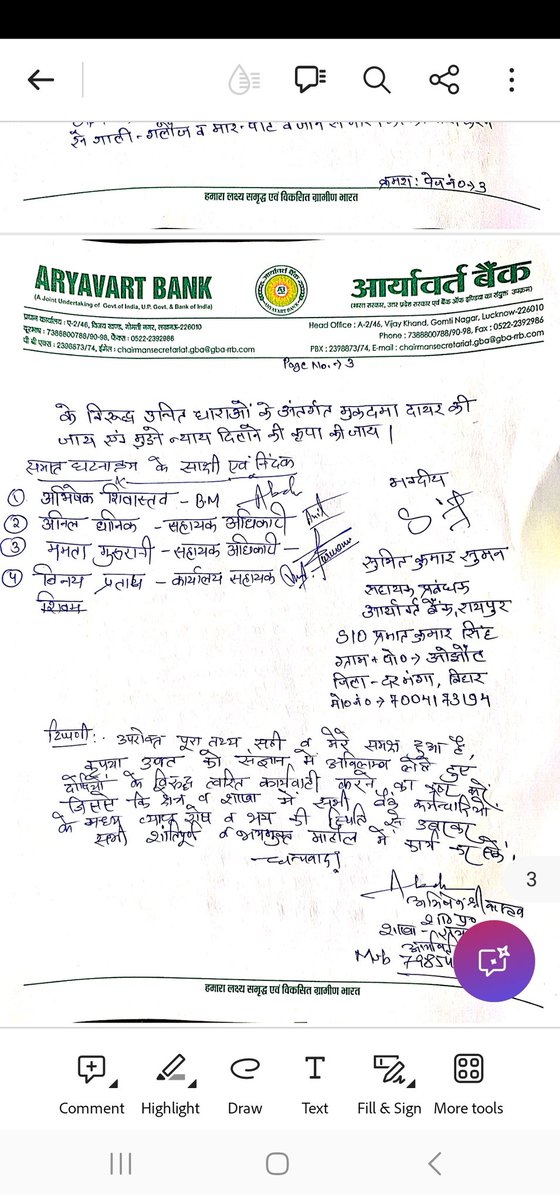 इन गाली-गलौज व मार-पीट व जान से
क्रमश: पेज नं०→3
हमारा लक्ष्य समृद्ध एवं विकसित ग्रामीण भारत
ARYAVART BANK
(A Joint Undertaking of Govt of India, U.P. Govt. & Bank of India)
प्रधान कार्यालय : ए-2/46, विजय खण्ड, गोमती नगर, लखनऊ-226010
दूरभाष : 7388800788/90-98, फैक्स : 0522-2392986
पी बी एक्स : 2398873/74, ईमेल : chairmansecretariat.gba@gba-rrb.com
ARYAVART BANK
आर्यावर्त बैंक
(भारत सरकार, उत्तर प्रदेश सरकार एवं बैंक ऑफ इण्डिया का संयुक्त उपक्रम)
Head Office : A-2/46, Vijay Khand, Gomti Nagar, Lucknow-226010
Phone : 7388800788/90-98, Fax : 0522-2392986
PBX : 2398873/74, E-mail : chairmansecretariat.gba@gba-rrb.com
Page No.→3
के विरूद्ध उचित धाराओं के अंतर्गत मुकदमा दायर की
जाय एवं मुझे न्याय दिलाने की कृपा की जाय।
समस्त घटनाक्रम के साक्षी एवं निंदक
① अभिषेक श्रीवास्तव - BM
② अनिल धानिक - सहायक अधिकारी
③ ममता गुरुरानी - सहायक अधिकारी -
④ विनय प्रताप - कार्यालय सहायक
भवदीय
सुमित कुमार सुमन
सहायक प्रबंधक
आर्यावर्त बैंक, रायपुर
S/O प्रभात कुमार सिंह
ग्राम + पो०→ ओझौल
जिला - दरभंगा, बिहार
मो० नं०→ 7004173194
टिप्पणी:- उपरोक्त पूरा तथ्य सही व मेरे समक्ष हुआ है,
कृपया उक्त को संज्ञान में अविलम्ब लेते हुए
दोषियों के विरूद्ध त्वरित कार्यवाही करने का कष्ट करें
जिससे कि क्षेत्र व शाखा में सभी बैंक कर्मचारियों
के मध्य व्याप्त रोष व भय की स्थिति से उबरकर
सभी शांतिपूर्ण व भयमुक्त माहौल में कार्य कर सकें।
- धन्यवाद।
अभिषेक श्रीवास्तव
शाखा
Mob 79854
3
हमारा लक्ष्य समृद्ध एवं विकसित ग्रामीण भारत
Comment
Highlight
Draw
Text
Fill & Sign
More tools